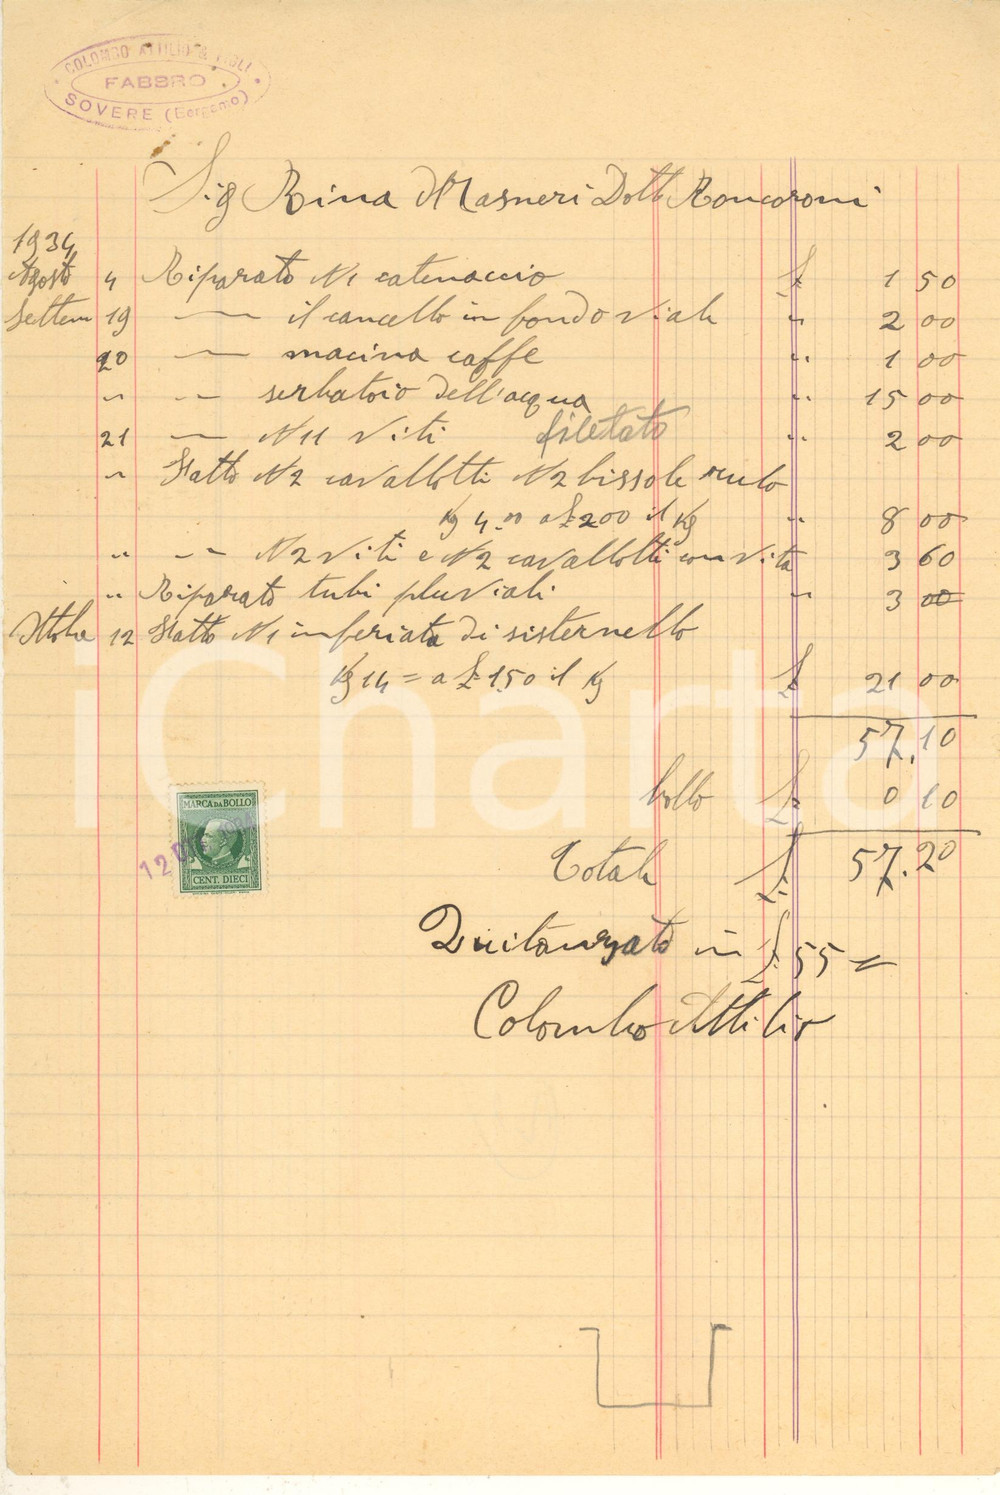 COLOMBO ATTILIO & FIGLI
FABBRO
SOVERE (Bergamo)
Sig Rina Masneri Dott Roncoroni
1934
Agosto 4 Riparato N1 catenaccio £ 1 50
Settem 19 — il cancello in fondo viale " 2 00
20 — macina caffe " 1 00
" " serbatoio dell'acqua " 15 00
21 — N11 viti filetato " 2 00
" Fatto N2 cavallotti N2 bissole
Kg 4.00 a £ 200 il Kg " 8 00
" " N2 viti e N2 cavallotti con vita 3 60
" Riparato tubi pluviali " 3 00
Ottobre 12 Fatto N1 inferiata di sisternello
Kg 14 = a £ 1.50 il Kg £ 21 00
57.10
bollo £ 0 10
Totale £ 57.20
MARCA DA BOLLO
12 DIC 1934
CENT. DIECI
Quitanzato in £ 55 =
Colombo Attilio
iCharta